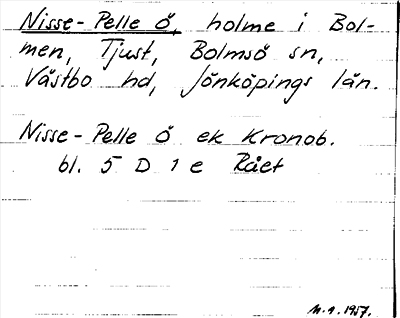 Nisse-Pelle ö, holme i Bol-
men, Tjust, Bolmsö sn,
Västbo hd, Jönköpings län.
Nisse-Pelle ö ek Kronob.
bl. 5 D 1 e Rået
M.A. 1957.